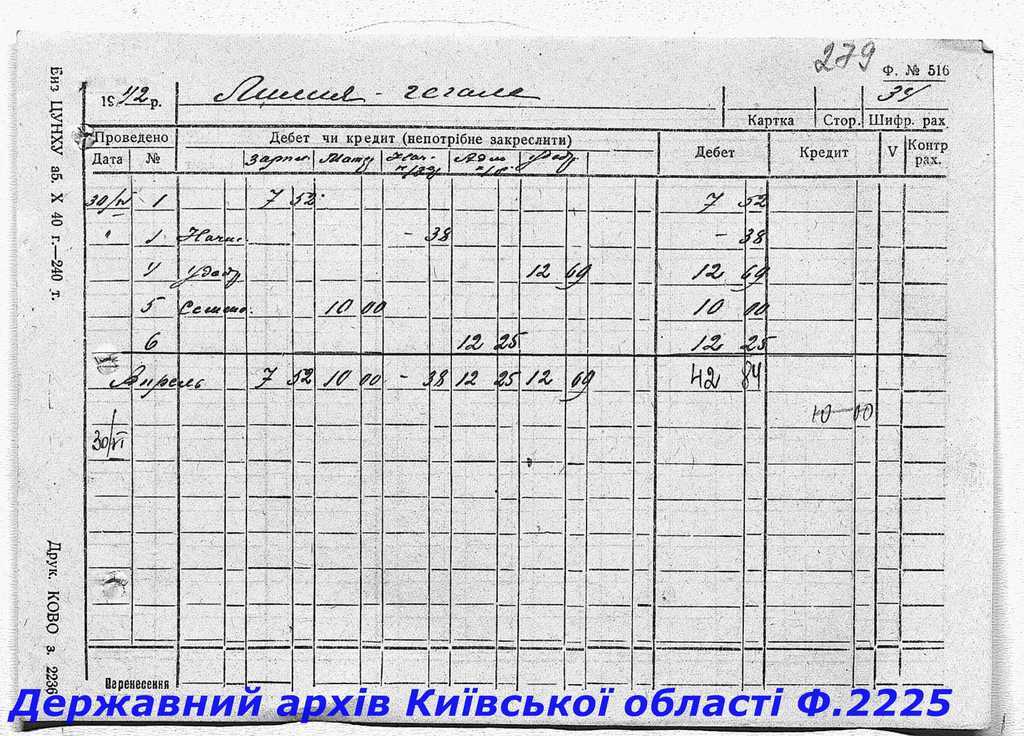 279
Ф. № 516
1942 р. Лилия - гегала 34
Картка Стор. Шифр. рах
Проведено Дебет чи кредит (непотрібне закреслити) Дебет Кредит V Контр рах.
Дата №
30/IV 1 7 52 7 52
" 1 Начис. - 38 - 38
4 удобр 12 69 12 69
5 Семена. 10 00 10 00
6 12 25 12 25
Апрель 7 52 10 00 - 38 12 25 12 69 42 84
10 - 10
30/VI
Перенесення
Биз ЦУНКУ аб. X 40 г.-240 т.
Друк. КОВО з. 2236
Державний архів Київської області Ф.2225